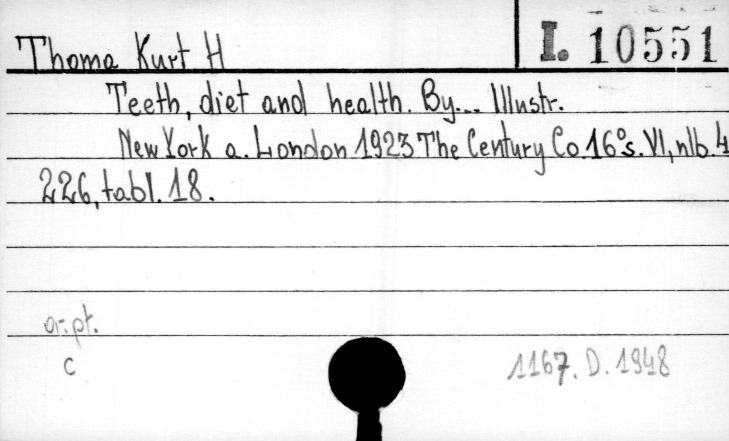 Thoma Kurt H
I. 10551
Teeth, diet and health. By... Illustr.
New York a. London 1923 The Century Co. 16°s. VI, nlb. 4
226, tabl. 18.
or. pt.
c
1167. D. 1948